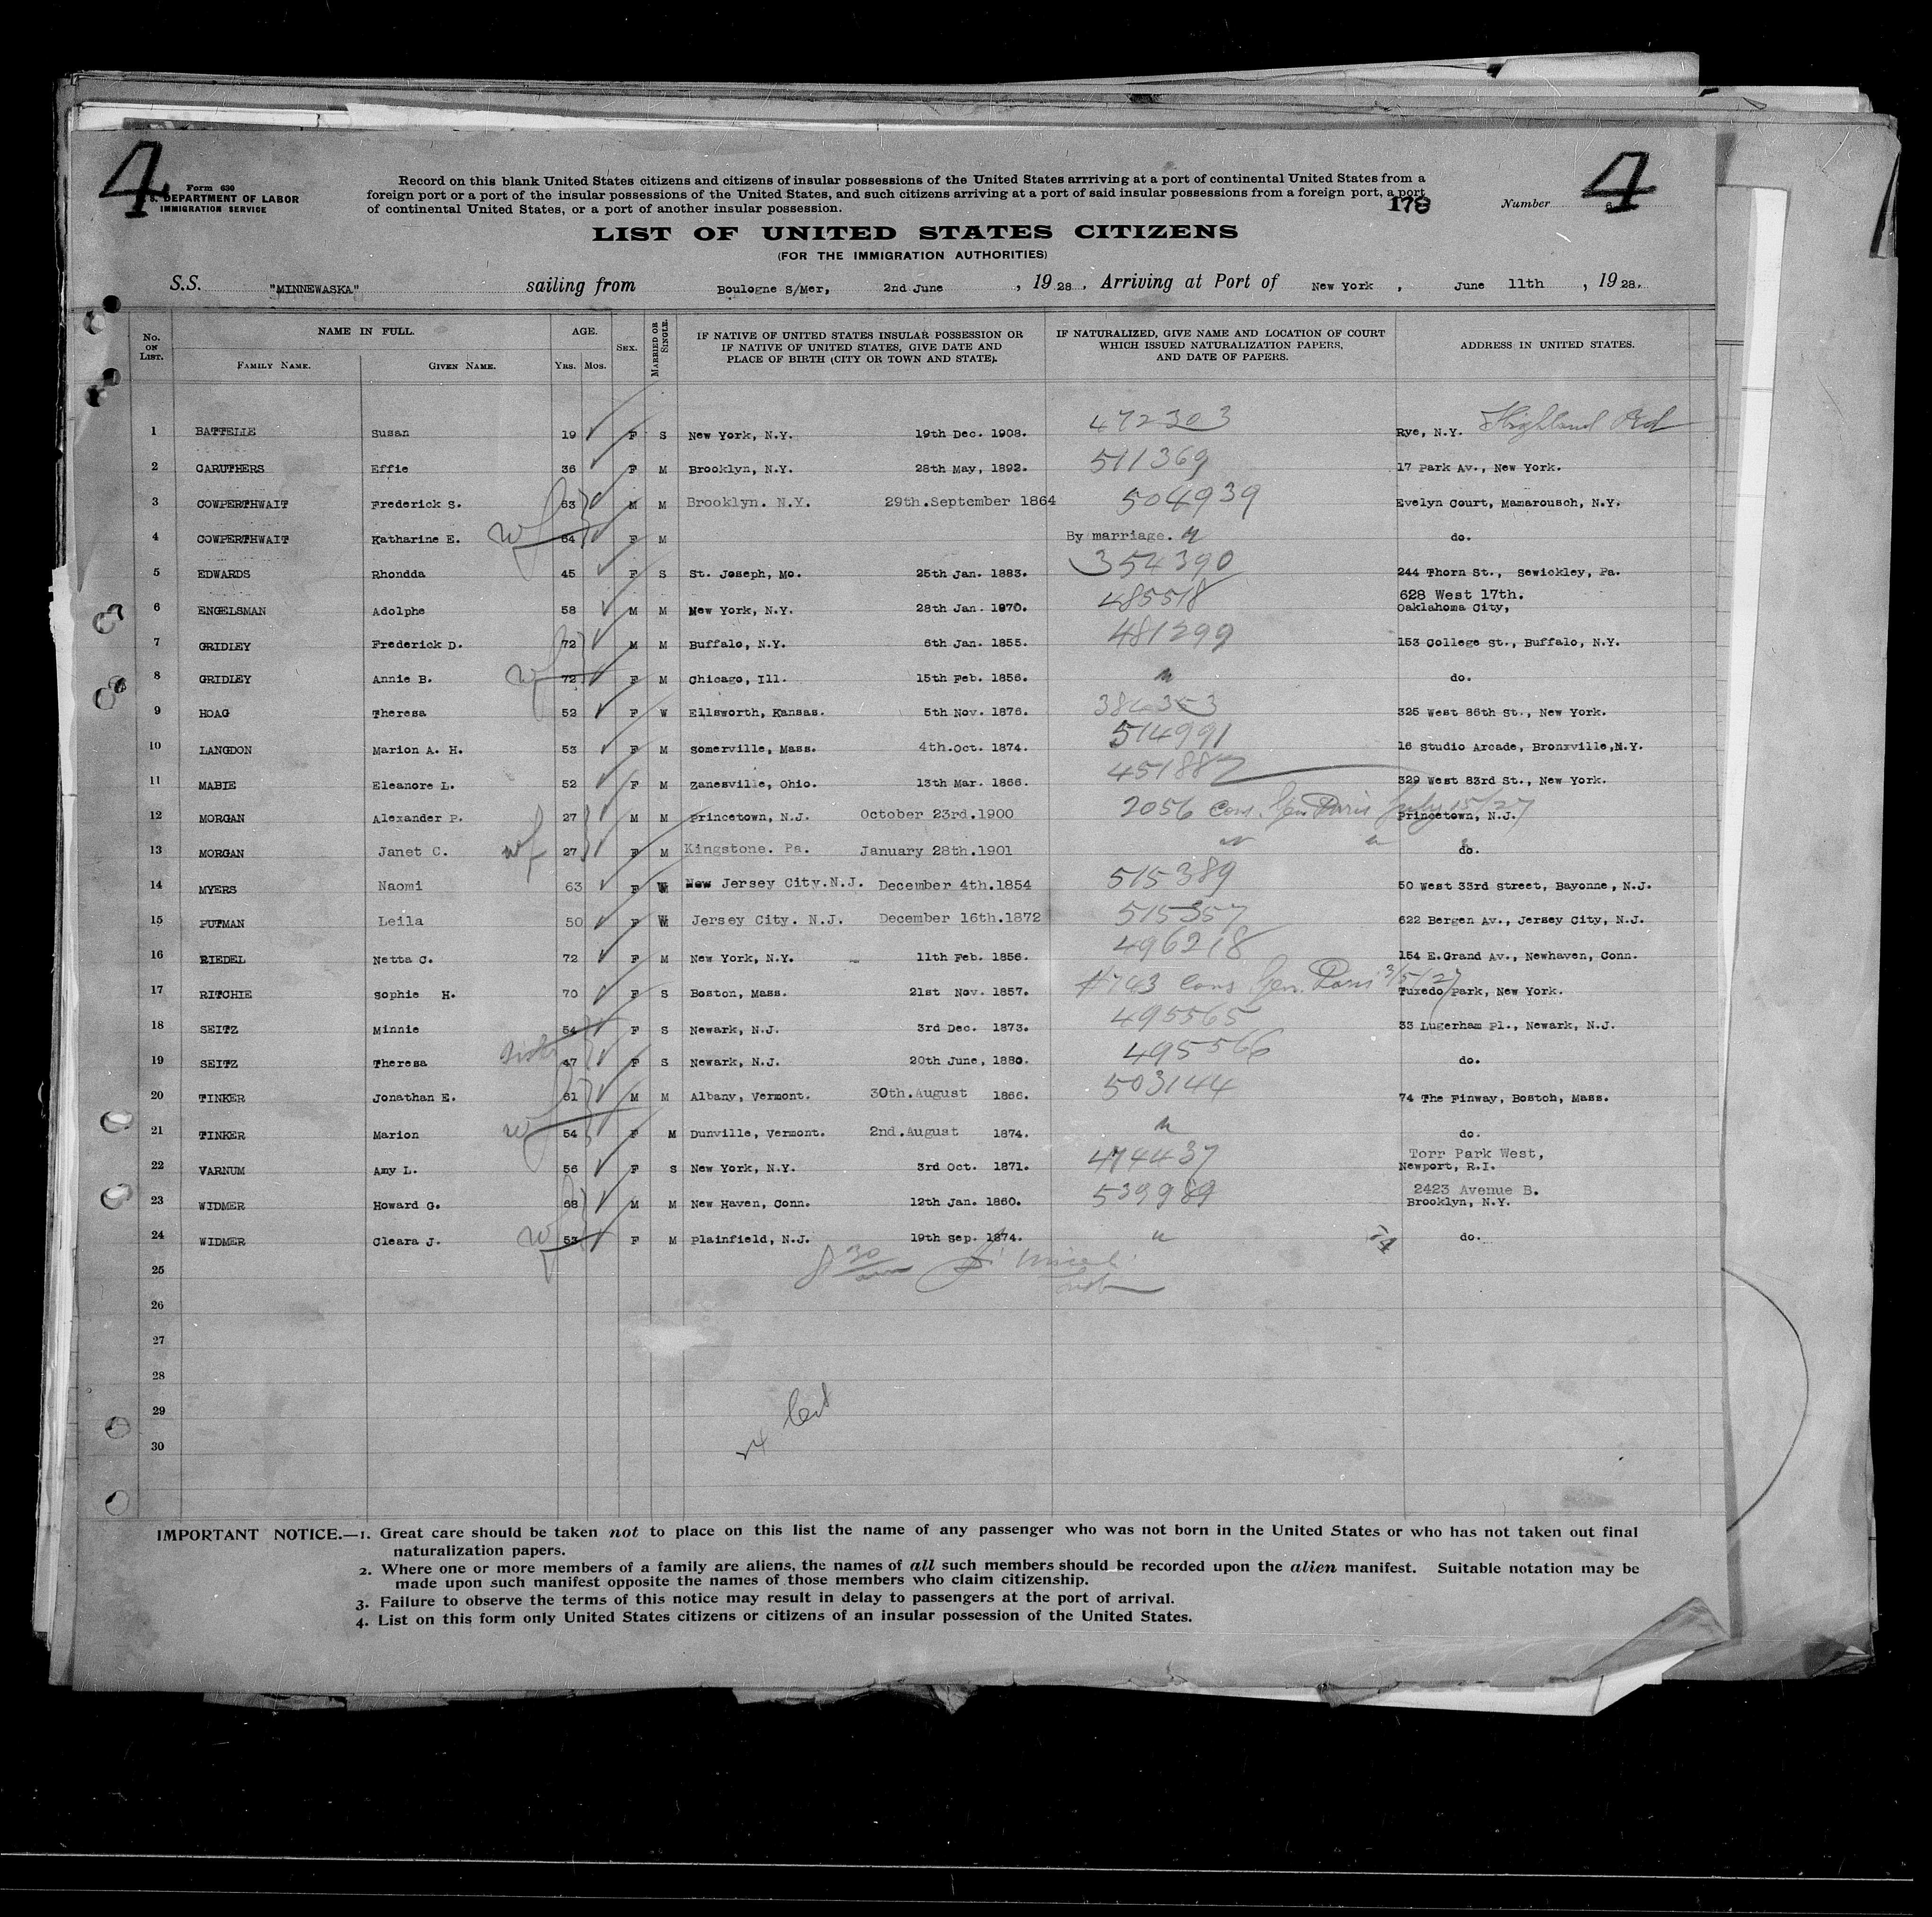 4
4
Form 630
U.S. DEPARTMENT OF LABOR
IMMIGRATION SERVICE
Record on this blank United States citizens and citizens of insular possessions of the United States arrriving at a port of continental United States from a
foreign port or a port of the insular possessions of the United States, and such citizens arriving at a port of said insular possessions from a foreign port, a port
of continental United States, or a port of another insular possession.
178
Number
LIST OF UNITED STATES CITIZENS
(FOR THE IMMIGRATION AUTHORITIES)
S.S. "MINNEWASKA" sailing from Boulogne S/Mer, 2nd June, 1928. Arriving at Port of New York, June 11th, 1928.
No. ON LIST. NAME IN FULL. AGE. SEX. MARRIED OR SINGLE. IF NATIVE OF UNITED STATES INSULAR POSSESSION OR IF NATIVE OF UNITED STATES, GIVE DATE AND PLACE OF BIRTH (CITY OR TOWN AND STATE). IF NATURALIZED, GIVE NAME AND LOCATION OF COURT WHICH ISSUED NATURALIZATION PAPERS, AND DATE OF PAPERS. ADDRESS IN UNITED STATES.
FAMILY NAME. GIVEN NAME. YRS. MOS.
1 BATTELLE Susan 19 F S New York, N.Y. 19th Dec. 1908. 472303 Rye, N.Y. Highland Rd
2 CARUTHERS Effie 36 F M Brooklyn, N.Y. 28th May, 1892. 511369 17 Park Av., New York.
3 COWPERTHWAIT Frederick S. 63 M M Brooklyn. N.Y. 29th.September 1864 504939 Evelyn Court, Mamarousch, N.Y.
4 COWPERTHWAIT Katharine E. wf 64 F M By marriage. " do.
5 EDWARDS Rhondda 45 F S St. Joseph, Mo. 25th Jan. 1883. 354390 244 Thorn St., Sewickley, Pa.
6 ENGELSMAN Adolphe 58 M M New York, N.Y. 28th Jan. 1970. 485518 628 West 17th. Oaklahoma City,
7 GRIDLEY Frederick D. 72 M M Buffalo, N.Y. 6th Jan. 1855. 481299 153 College St., Buffalo, N.Y.
8 GRIDLEY Annie B. wf 72 F M Chicago, Ill. 15th Feb. 1856. " do.
9 HOAG Theresa 52 F W Ellsworth, Kansas. 5th Nov. 1876. 325 West 86th St., New York.
10 LANGDON Marion A. H. 53 F M Somerville, Mass. 4th.Oct. 1874. 514991 16 Studio Arcade, Bronxville,N.Y.
11 MABIE Eleanore L. 52 F M Zanesville, Ohio. 13th Mar. 1866. 451887 329 West 83rd St., New York.
12 MORGAN Alexander P. 27 M M Princetown, N.J. October 23rd.1900 2056 Cons. Gen Paris July 15/27 Princetown, N.J.
13 MORGAN Janet C. wf 27 F M Kingstone. Pa. January 28th.1901 " " do.
14 MYERS Naomi 63 F W New Jersey City.N.J. December 4th.1854 515389 50 West 33rd Street, Bayonne, N.J.
15 PUTMAN Leila 50 F W Jersey City. N.J. December 16th.1872 515357 622 Bergen Av., Jersey City, N.J.
16 RIEDEL Netta C. 72 F M New York, N.Y. 11th Feb. 1856. 496218 154 E.Grand Av., Newhaven, Conn.
17 RITCHIE Sophie H. 70 F S Boston, Mass. 21st Nov. 1857. #743 Cons Gen. Paris 3/5/27 Tuxedo Park, New York.
18 SEITZ Minnie 54 F S Newark, N.J. 3rd Dec. 1873. 495565 33 Lugerham Pl., Newark, N.J.
19 SEITZ Theresa 47 F S Newark, N.J. 20th June, 1880. 495566 do.
20 TINKER Jonathan E. 61 M M Albany, Vermont. 30th.August 1866. 503144 74 The Finway, Bostoh, Mass.
21 TINKER Marion wf 54 F M Dunville, Vermont. 2nd.August 1874. " do.
22 VARNUM Amy L. 56 F S New York, N.Y. 3rd Oct. 1871. 474437 Torr Park West, Newport, R.I.
23 WIDMER Howard G. 68 M M New Haven, Conn. 12th Jan. 1860. 539989 2423 Avenue B. Brooklyn, N.Y.
24 WIDMER Cleara J. wf 53 F M Plainfield, N.J. 19th Sep. 1874. " 74 do.
25
26
27
28
29
30
IMPORTANT NOTICE.—1. Great care should be taken not to place on this list the name of any passenger who was not born in the United States or who has not taken out final
naturalization papers.
2. Where one or more members of a family are aliens, the names of all such members should be recorded upon the alien manifest. Suitable notation may be
made upon such manifest opposite the names of those members who claim citizenship.
3. Failure to observe the terms of this notice may result in delay to passengers at the port of arrival.
4. List on this form only United States citizens or citizens of an insular possession of the United States.